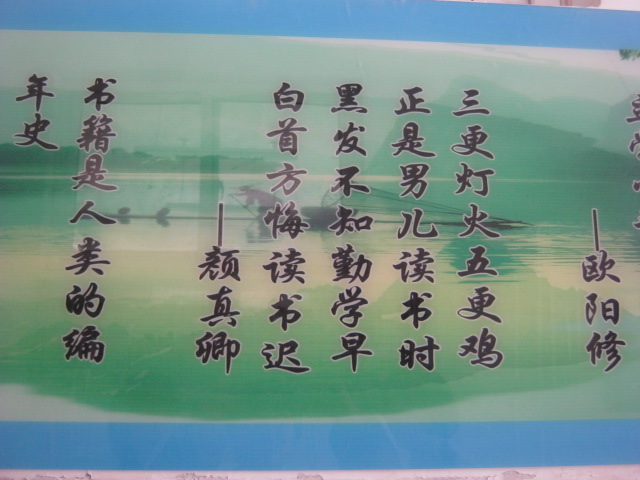 ——欧阳修
三更灯火五更鸡
正是男儿读书时
黑发不知勤学早
白首方悔读书迟
——颜真卿
书籍是人类的编
年史